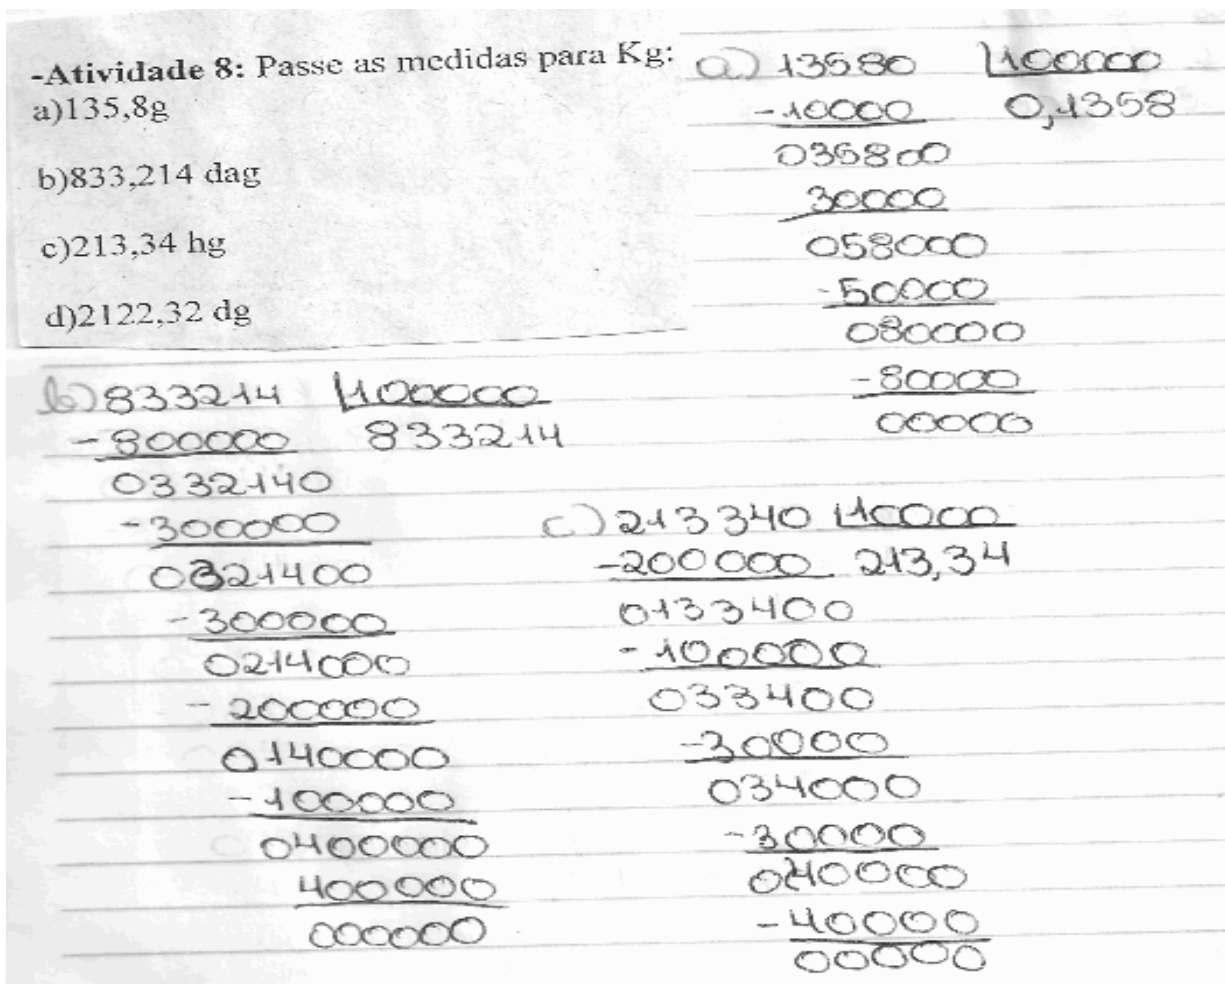 -Atividade 8: Passe as medidas para Kg:
a)135,8g
b)833,214 dag
c)213,34 hg
d)2122,32 dg
a) 13580 100000
-10000 0,1358
035800
30000
058000
-50000
080000
-80000
00000
b) 833214 100000
-800000 833214
0332140
-300000
0321400
-300000
0214000
-200000
0140000
-100000
0400000
400000
000000
c) 213340 10000
-200000 213,34
0133400
-100000
033400
-30000
034000
-30000
040000
-40000
00000